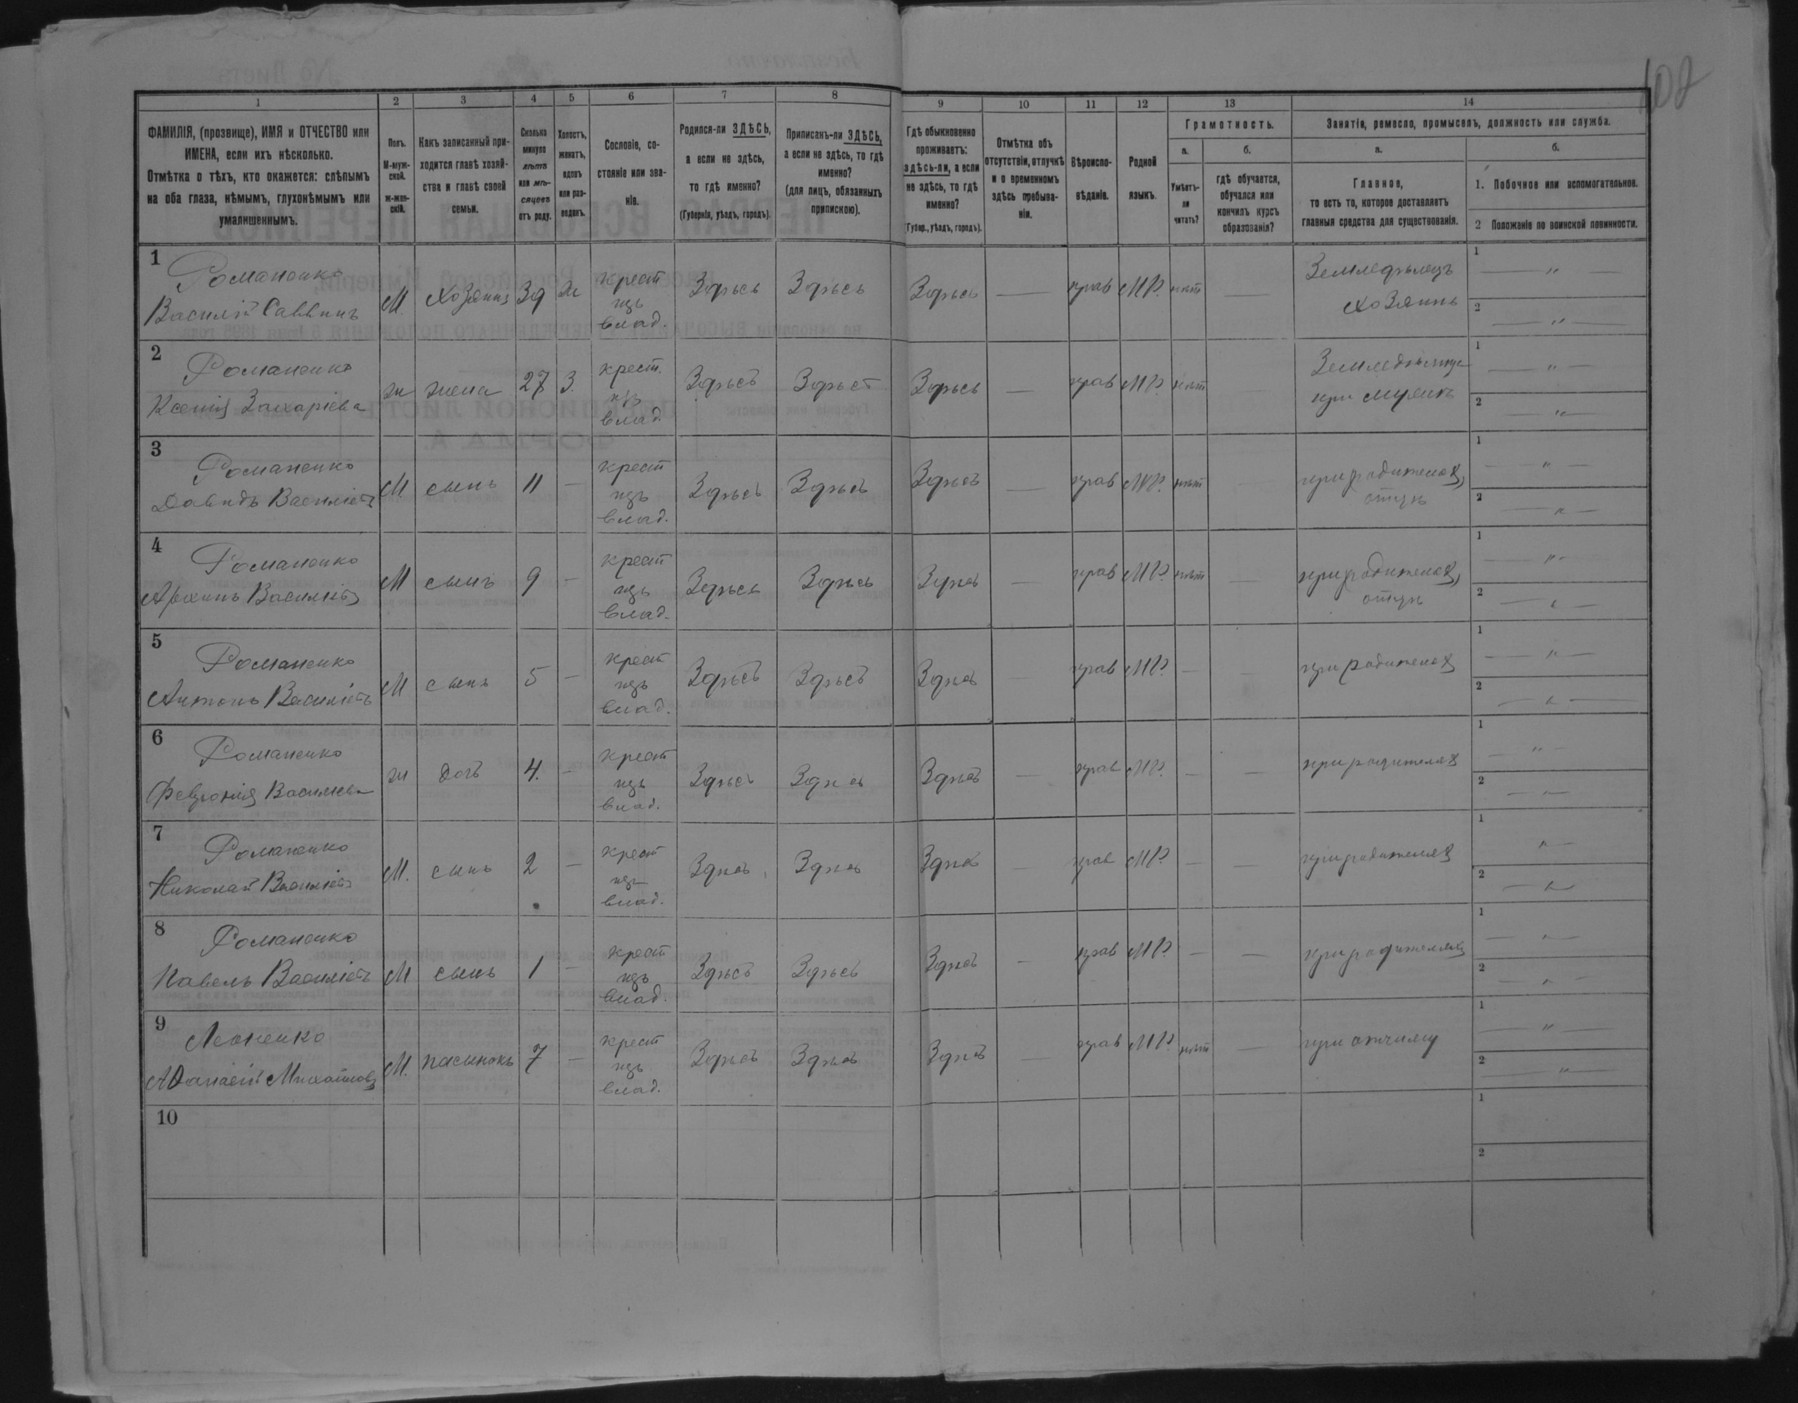 108
1 2 3 4 5 6 7 8 9 10 11 12 13 14
ФАМИЛІЯ, (прозвище), ИМЯ и ОТЧЕСТВО или
ИМЕНА, если ихъ нѣсколько.
Отмѣтка о тѣхъ, кто окажется: слѣпымъ
на оба глаза, нѣмымъ, глухонѣмымъ или
умалишеннымъ.
Полъ.
М-муж-
ской.
ж-жен-
скій.
Какъ записанный при-
ходится главѣ хозяй-
ства и главѣ своей
семьи.
Сколько
минуло
лѣтъ
или мѣ-
сяцевъ
отъ роду.
Холостъ,
женатъ,
вдовъ
или раз-
веденъ.
Сословіе, со-
стояніе или зва-
ніе.
Родился-ли ЗДѢСЬ,
а если не здѣсь,
то гдѣ именно?
(Губернія, уѣздъ, городъ).
Приписанъ-ли ЗДѢСЬ,
а если не здѣсь, то гдѣ
именно?
(для лицъ, обязанныхъ
припискою).
Гдѣ обыкновенно
проживаетъ:
здѣсь-ли, а если
не здѣсь, то гдѣ
именно?
(Губер., уѣздъ, городъ).
Отмѣтка объ
отсутствіи, отлучкѣ
и о временномъ
здѣсь пребыва-
ніи.
Вѣроиспо-
вѣданіе.
Родной
языкъ.
Грамотность.
а.
Умѣетъ-
ли
читать?
б.
гдѣ обучается,
обучался или
кончилъ курсъ
образованія?
Занятіе, ремесло, промыселъ, должность или служба.
а.
Главное,
то есть то, которое доставляетъ
главныя средства для существованія.
б.
1. Побочное или вспомогательное.
2 Положеніе по воинской повинности.
1
Романенко
Василій Саввинъ
М. хозяинъ 39 ж
крест
изъ
влад.
Здѣсь Здѣсь Здѣсь — прав МР. нѣт —
Земледѣлецъ
хозяинъ
1 — " —
2 — " —
2
Романенко
Ксенія Захаріева
ж жена 27 З
крест.
изъ
влад
Здѣсь Здѣсь Здѣсь — прав МР. нѣт
при мужѣ
1 — " —
2 — " —
3
Романенко
Давидъ Василіевъ
М сынъ 11 —
крест
изъ
влад.
Здѣсь Здѣсь Здѣсь — прав МР. нѣт
при родителях
1 — " —
2 — " —
4
Романенко
Василіевъ
М сынъ 9 —
крест
изъ
влад.
Здѣсь Здѣсь Здѣсь — прав МР. нѣт
при родителях
1 — " —
2 — " —
5
Романенко
Антонъ Василіевъ
М сынъ 5 —
крест
изъ
влад.
Здѣсь Здѣсь Здѣсь — прав МР. — —
при родителях
1 — " —
2 — " —
6
Романенко
Февронія Василіева
ж дочь 4. —
крест
изъ
влад.
Здѣсь Здѣсь Здѣсь — прав МР. — —
при родителях
1 — " —
2 — " —
7
Романенко
Николай Василіевъ
М. сынъ 2 —
крест
изъ
влад.
Здѣсь Здѣсь Здѣсь — прав МР — —
при родителях
1 — " —
2 — " —
8
Романенко
Павелъ Василіевъ
М сынъ 1 —
крест
изъ
влад.
Здѣсь Здѣсь Здѣсь — прав МР — —
при родителях
1 — " —
2 — " —
9
Михайловъ
М. пасынокъ 7 —
крест
изъ
влад.
Здѣсь Здѣсь Здѣсь — прав МР. нѣт —
при отчиму
1 — " —
2 — " —
10
1
2